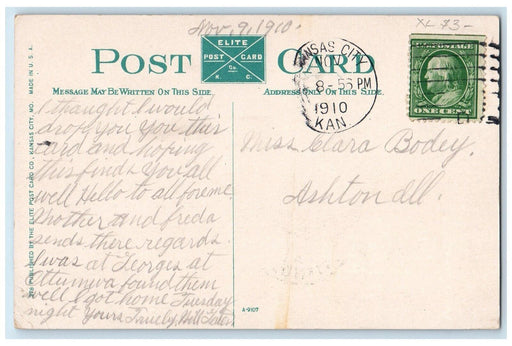 Nov. 9, 1910.
XL 73-
POST CARD
ELITE
POST CARD
Co.
K. C.
MESSAGE MAY BE WRITTEN ON THIS SIDE.
ADDRESS ONLY ON THIS SIDE.
KANSAS CITY
NOV
8-PM
1910
KAN.
U.S. POSTAGE
ONE CENT
I thaught I would
drop you you this
card and hoping
this finds you all
well Hello to all for me.
Mother and freda
sends there regards.
I was at Georges at
Ottumwa found them
well I got home Tuesday
night Yours Truely, Will
Miss Clara Bodey.
Ashton Ill.
PUBLISHED BY THE ELITE POST CARD CO., KANSAS CITY, MO. MADE IN U.S.A.
A-9107